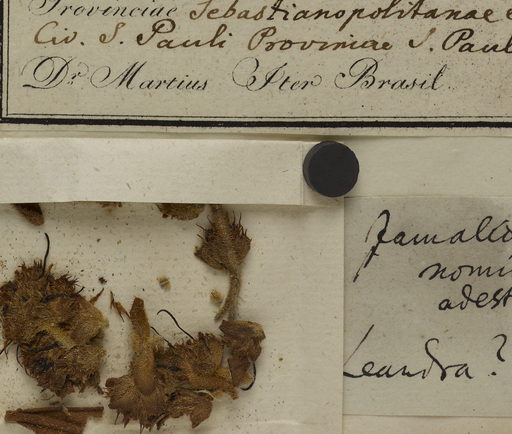 Provinciae Sebastianopolitanae
Civ. S. Pauli Provinciae S. Paul
Dr Martius Iter Brasil.
nomi
adest
Leandra?